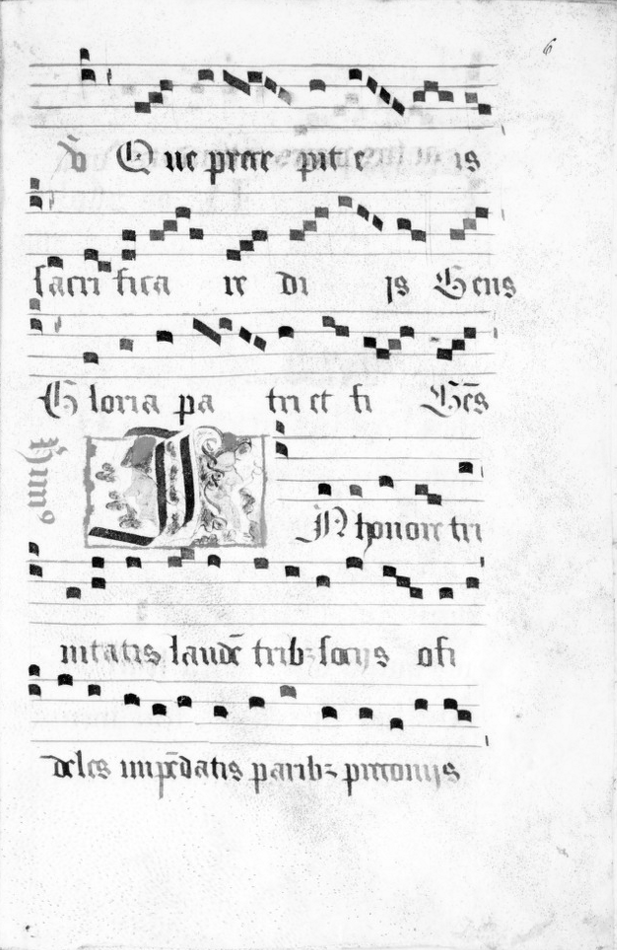 6
V Que prere pit e is
sacri fica re di is Gens
Gloria pa tri et fi Gēs
Himꝰ
IN honore tri
nitatis laudē trib⁊ socijs o fi
deles impēdatis parib⁊ preconijs